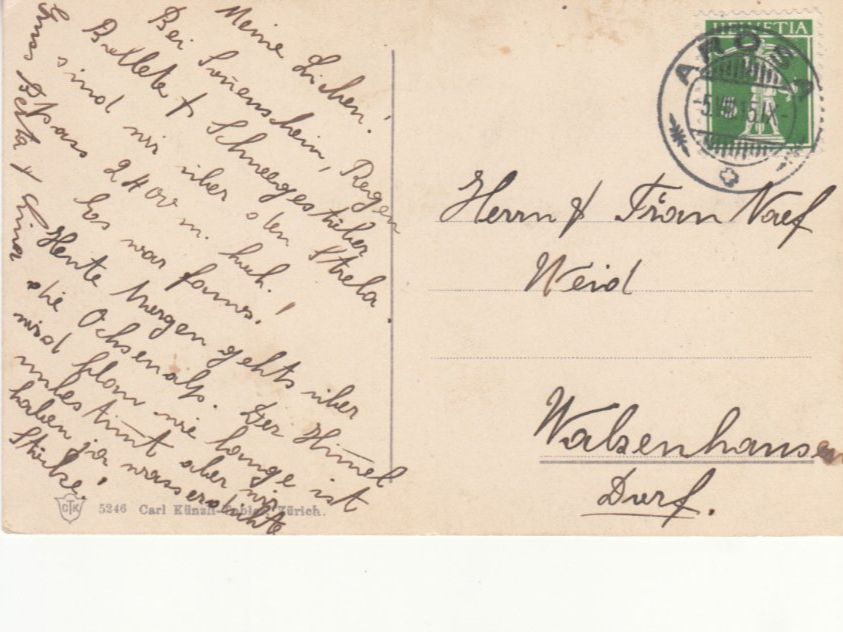 Meine Lieben!
Bei Sonnenschein, Regen
& Schneegestöber
sind wir über den Strela
Pass 2400 m. hoch.
Es war famos!
Heute Morgen gehts über
die Ochsenalp. Der Himmel
wird blau wie lange ist
unbestimmt aber wir
haben ja wasserdichte
Stöcke!
Berta & Lina
HELVETIA
AROSA
Herrn & Frau Naef
Weid
Walzenhausen
Dorf.
CTK 5246 Carl Künzli-Tobler, Zürich.